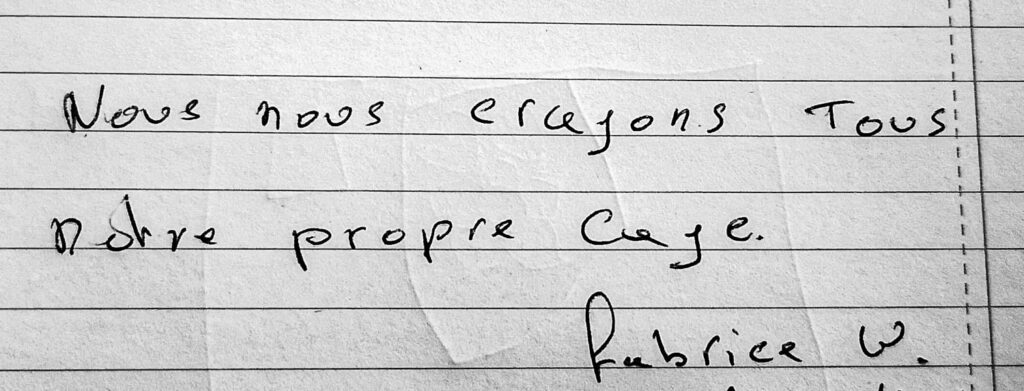 Nous nous erayons Tous
notre propre Cage.
fabrice W.